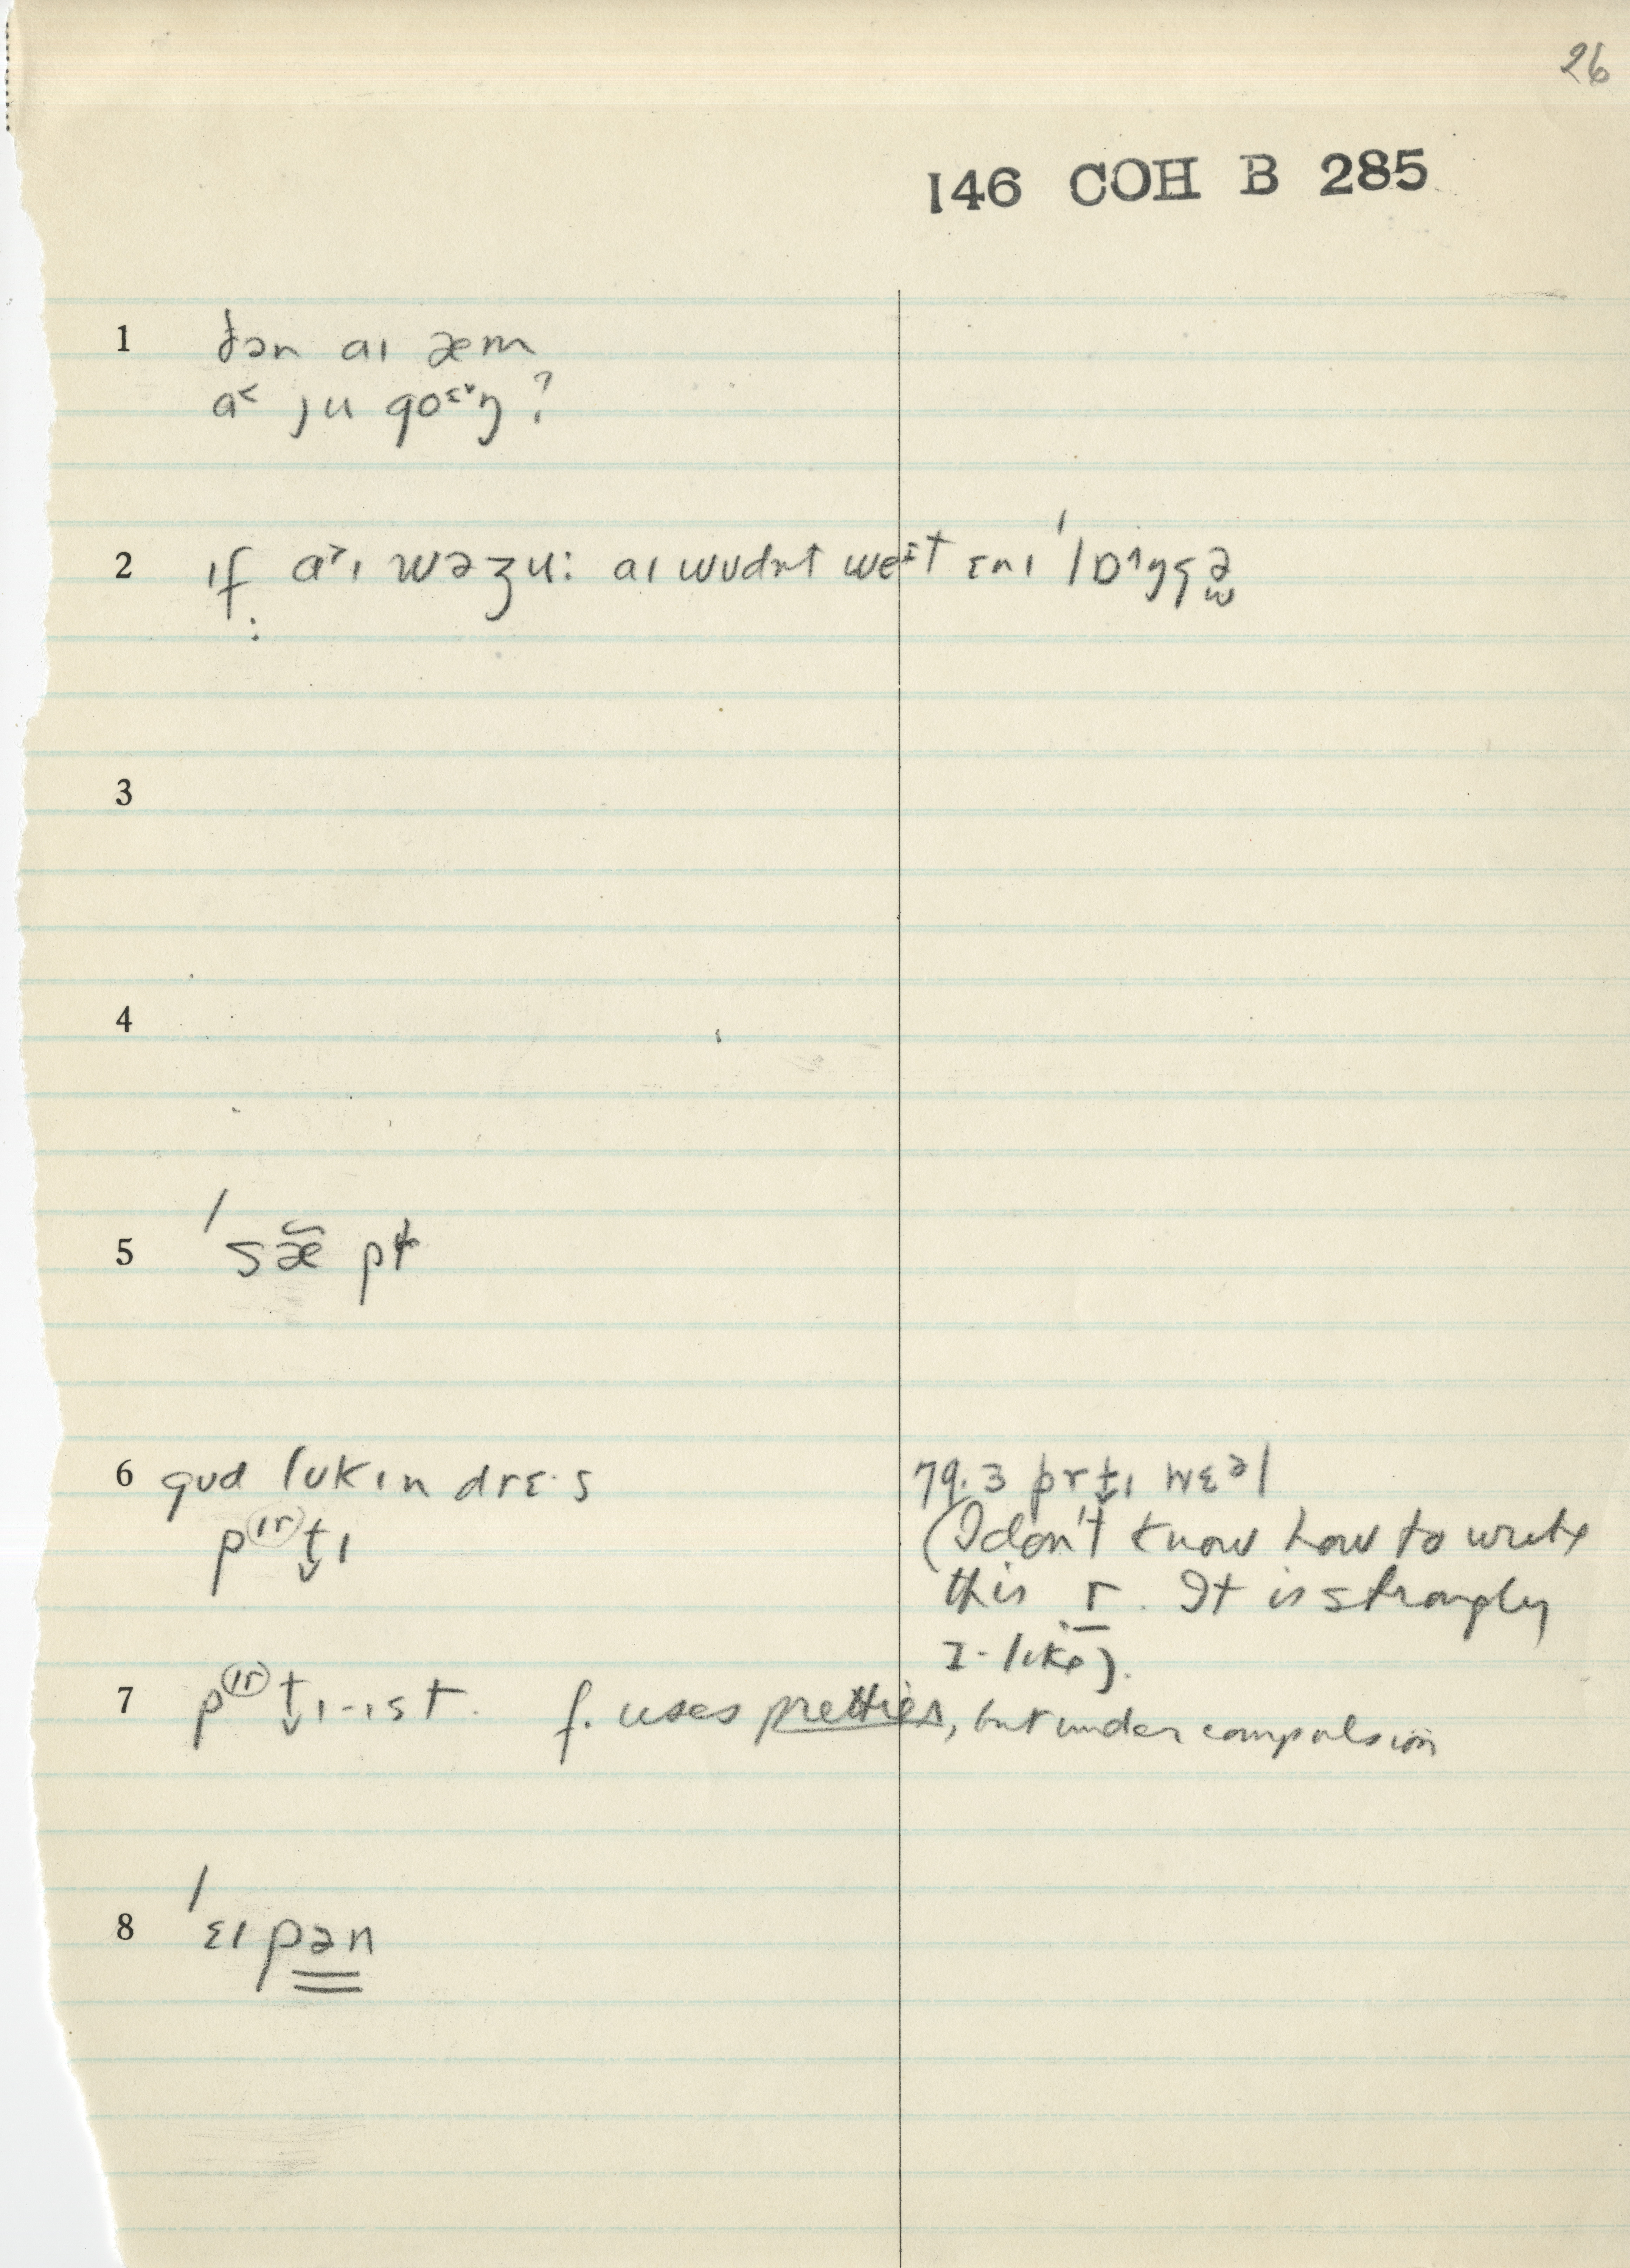 26
146 COH B 285
1 ðən aɪ æm
a˂ ju goɛ˅ŋ?
2 ɪf a˃ɪ wəʒu: aɪ wʊdnt weɪt ɛnɪ ˈlɒ˄ŋgə
3
4
5 ˈsæ̆ pt
6 gʊd lʊkɪn drɛ·s
p(ɪr)t̬ɪ
79.3 prt̬ɪ wɛəl
(I don't know how to write
this r. It is strongly
I-like).
7 p(ɪr)t̬ɪ-ɪst. f. uses pretties, but under compulsion
8 ˈɛɪpən